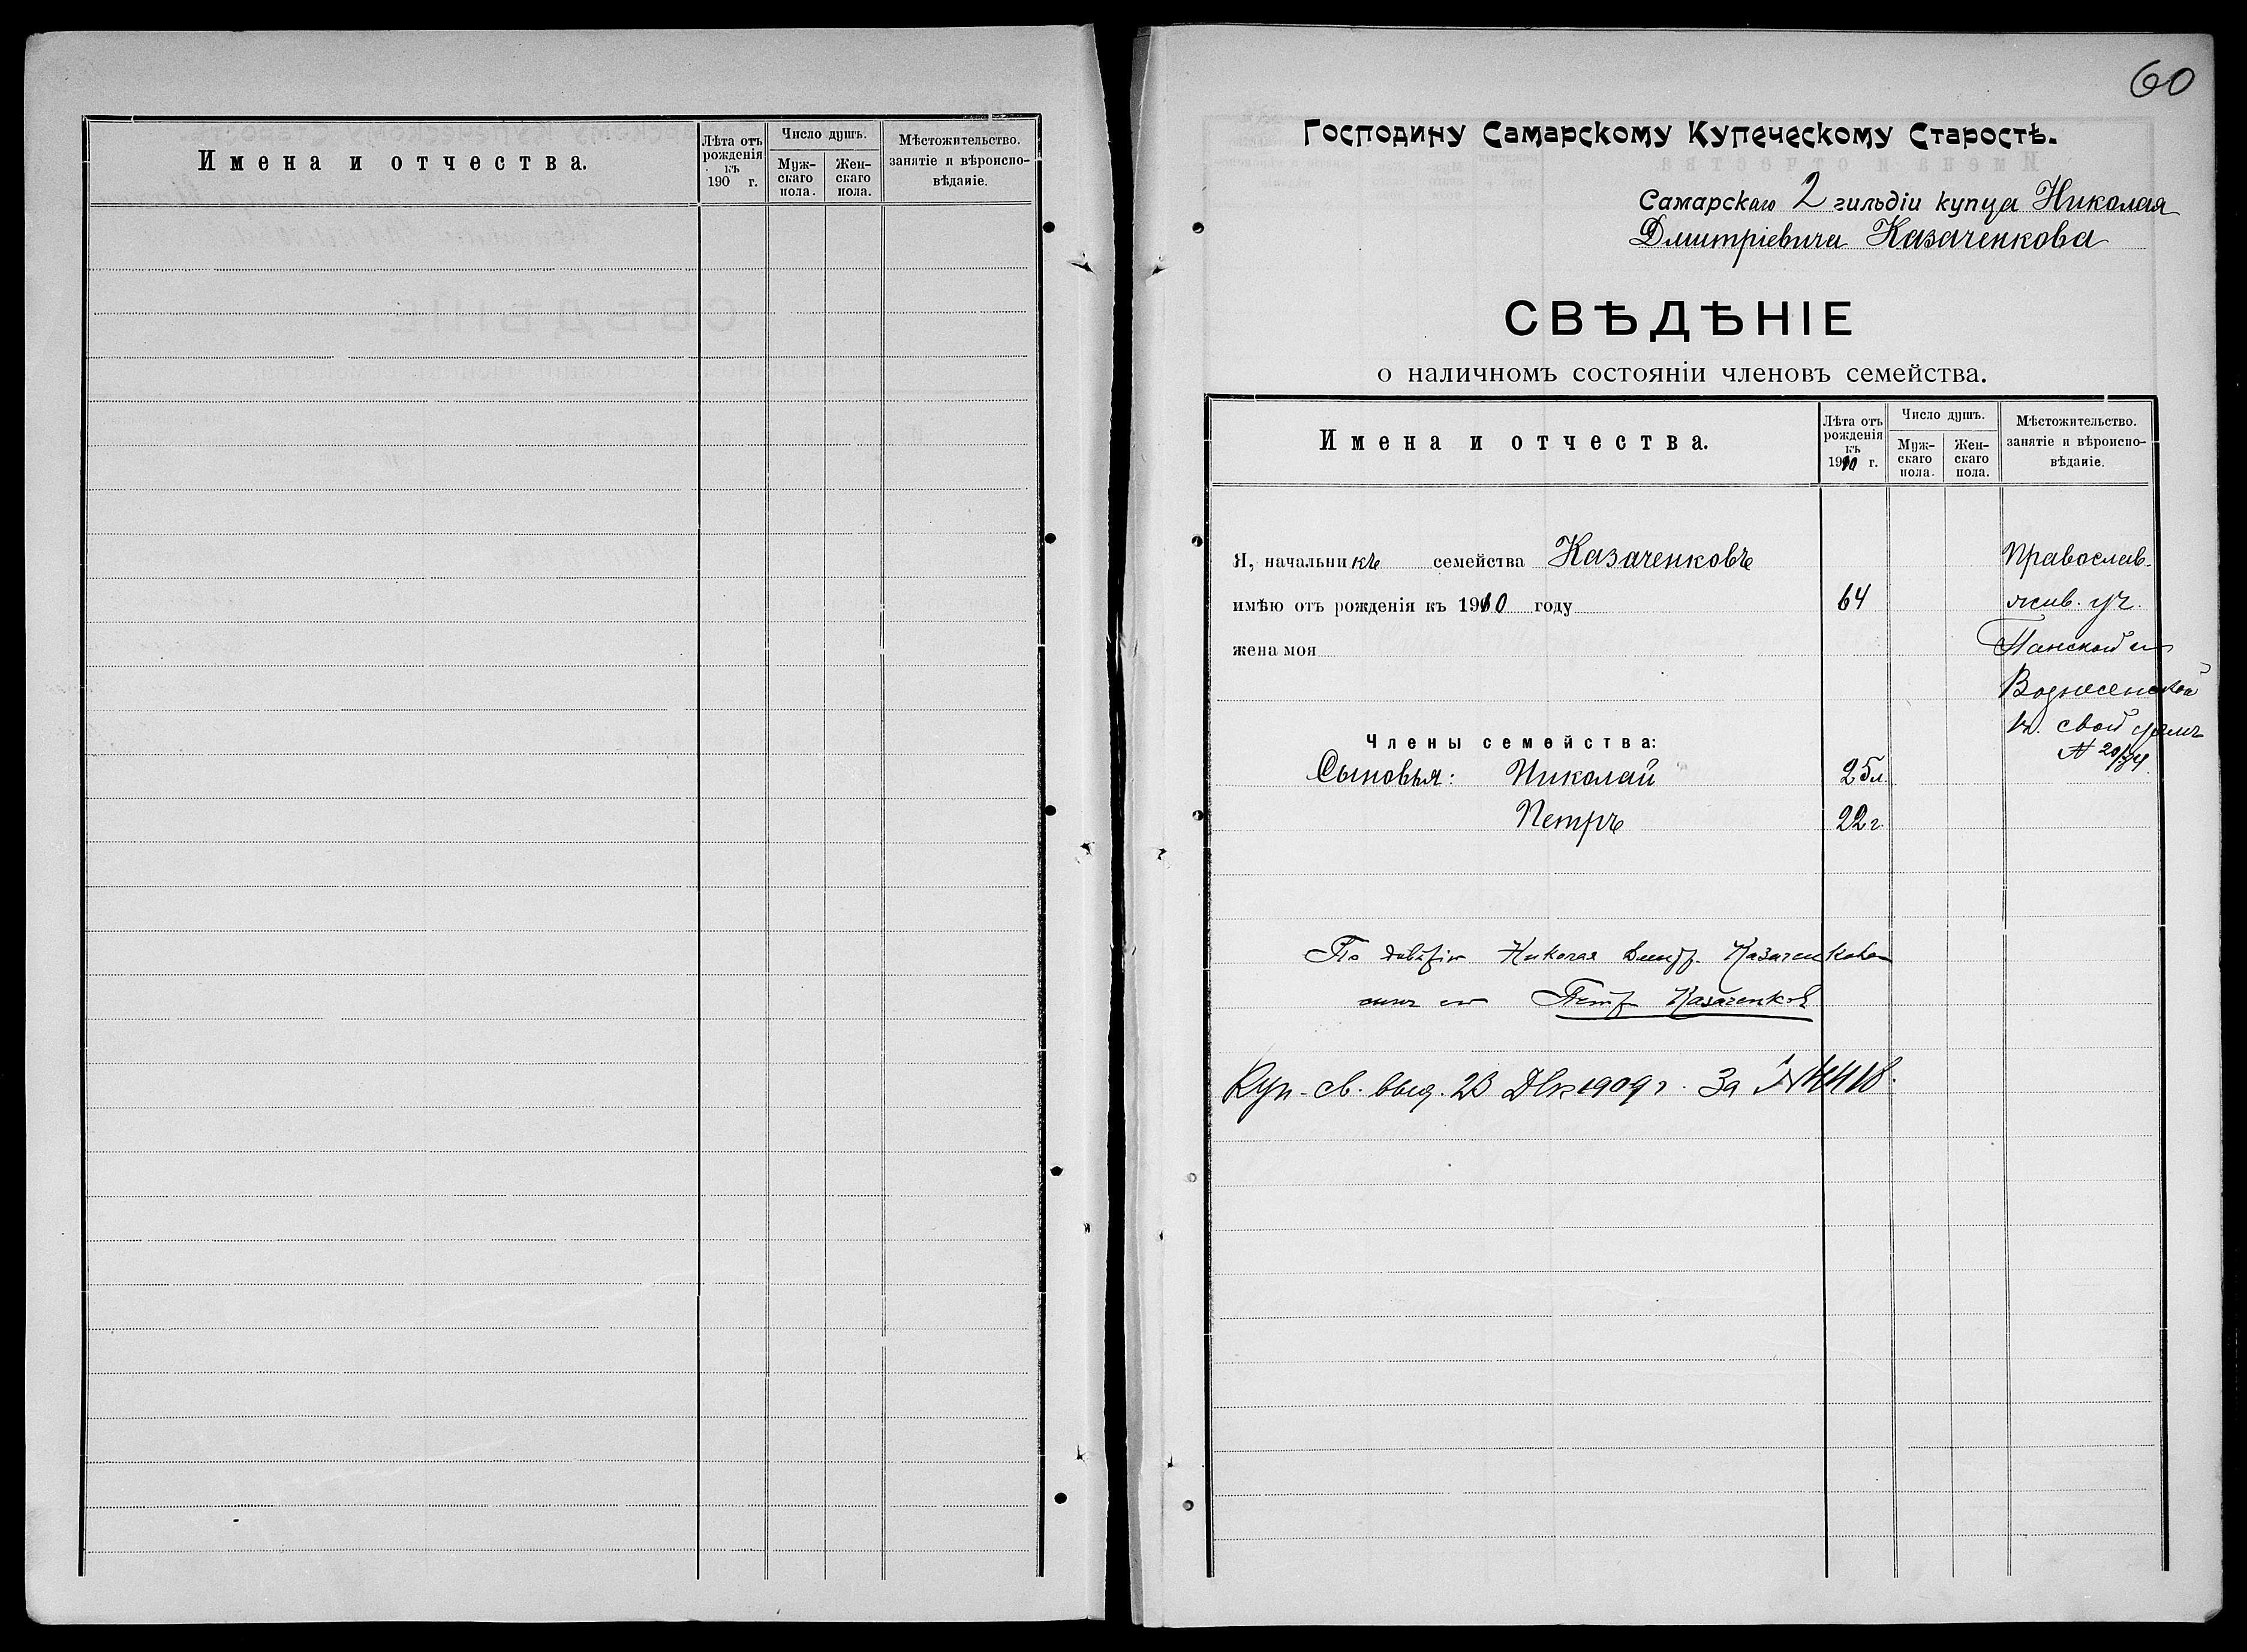 Имена и отчества.
Лѣта отъ рожденія къ 190 г.
Число душъ.
Муж-скаго пола.
Жен-скаго пола.
Мѣстожительство.
занятіе и вѣроиспо-
вѣданіе.
60
Господину Самарскому Купеческому Старостѣ.
Самарскаго 2 гильдіи купца Николая
Дмитріевича Казаченкова
СВѢДѢНІЕ
о наличномъ состояніи членовъ семейства.
Имена и отчества.
Лѣта отъ рожденія къ 1910 г.
Число душъ.
Муж-скаго пола.
Жен-скаго пола.
Мѣстожительство.
занятіе и вѣроиспо-
вѣданіе.
Я, начальникъ семейства Казаченковъ
Православ.
имѣю отъ рожденія къ 1910 году 64
жив. уг.
жена моя
Панской и
Вознесенской
въ свой домъ
Члены семейства:
№ 20/84.
Сыновья: Николай 25 л.
Петръ 22 г.
По довѣрію Николая Дмитр. Казаченкова
сынъ его Петръ Казаченковъ
Куп. св. выд. 23 Дек 1909 г. За №